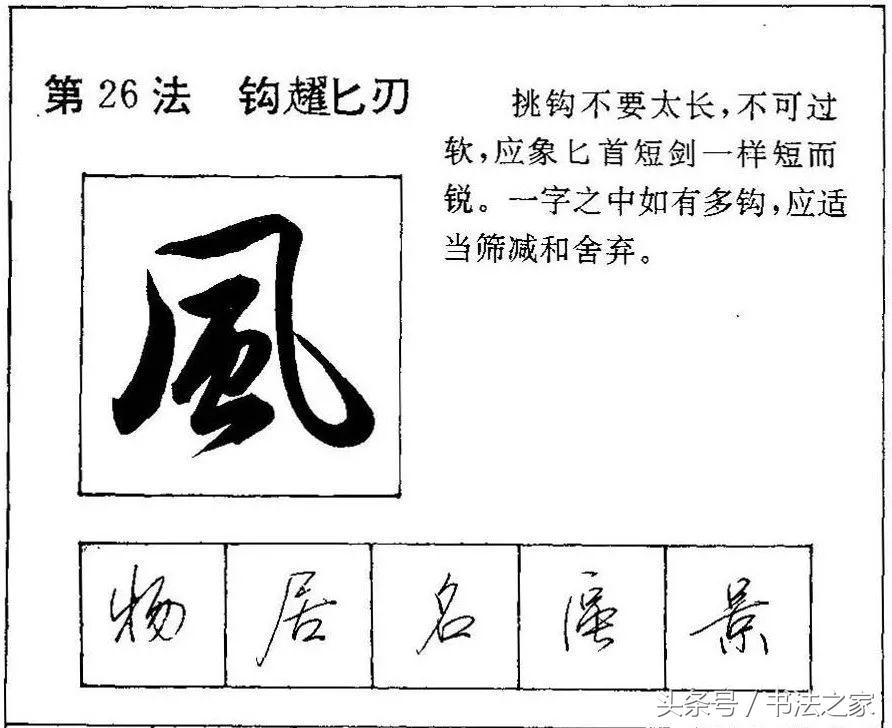 第26法 钩趯匕刃
挑钩不要太长，不可过
软，应象匕首短剑一样短而
锐。一字之中如有多钩，应适
当筛减和舍弃。
風
物 居 名 景
头条号 / 书法之家